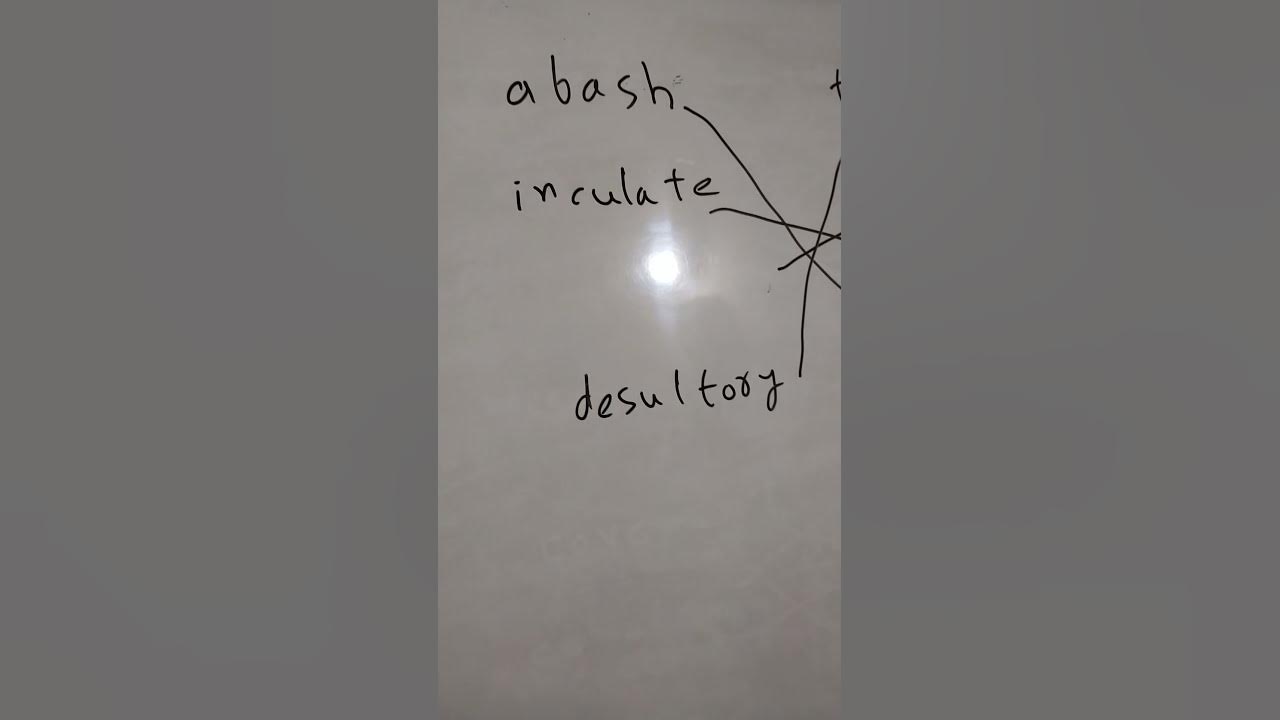 abash
inculate
desultory